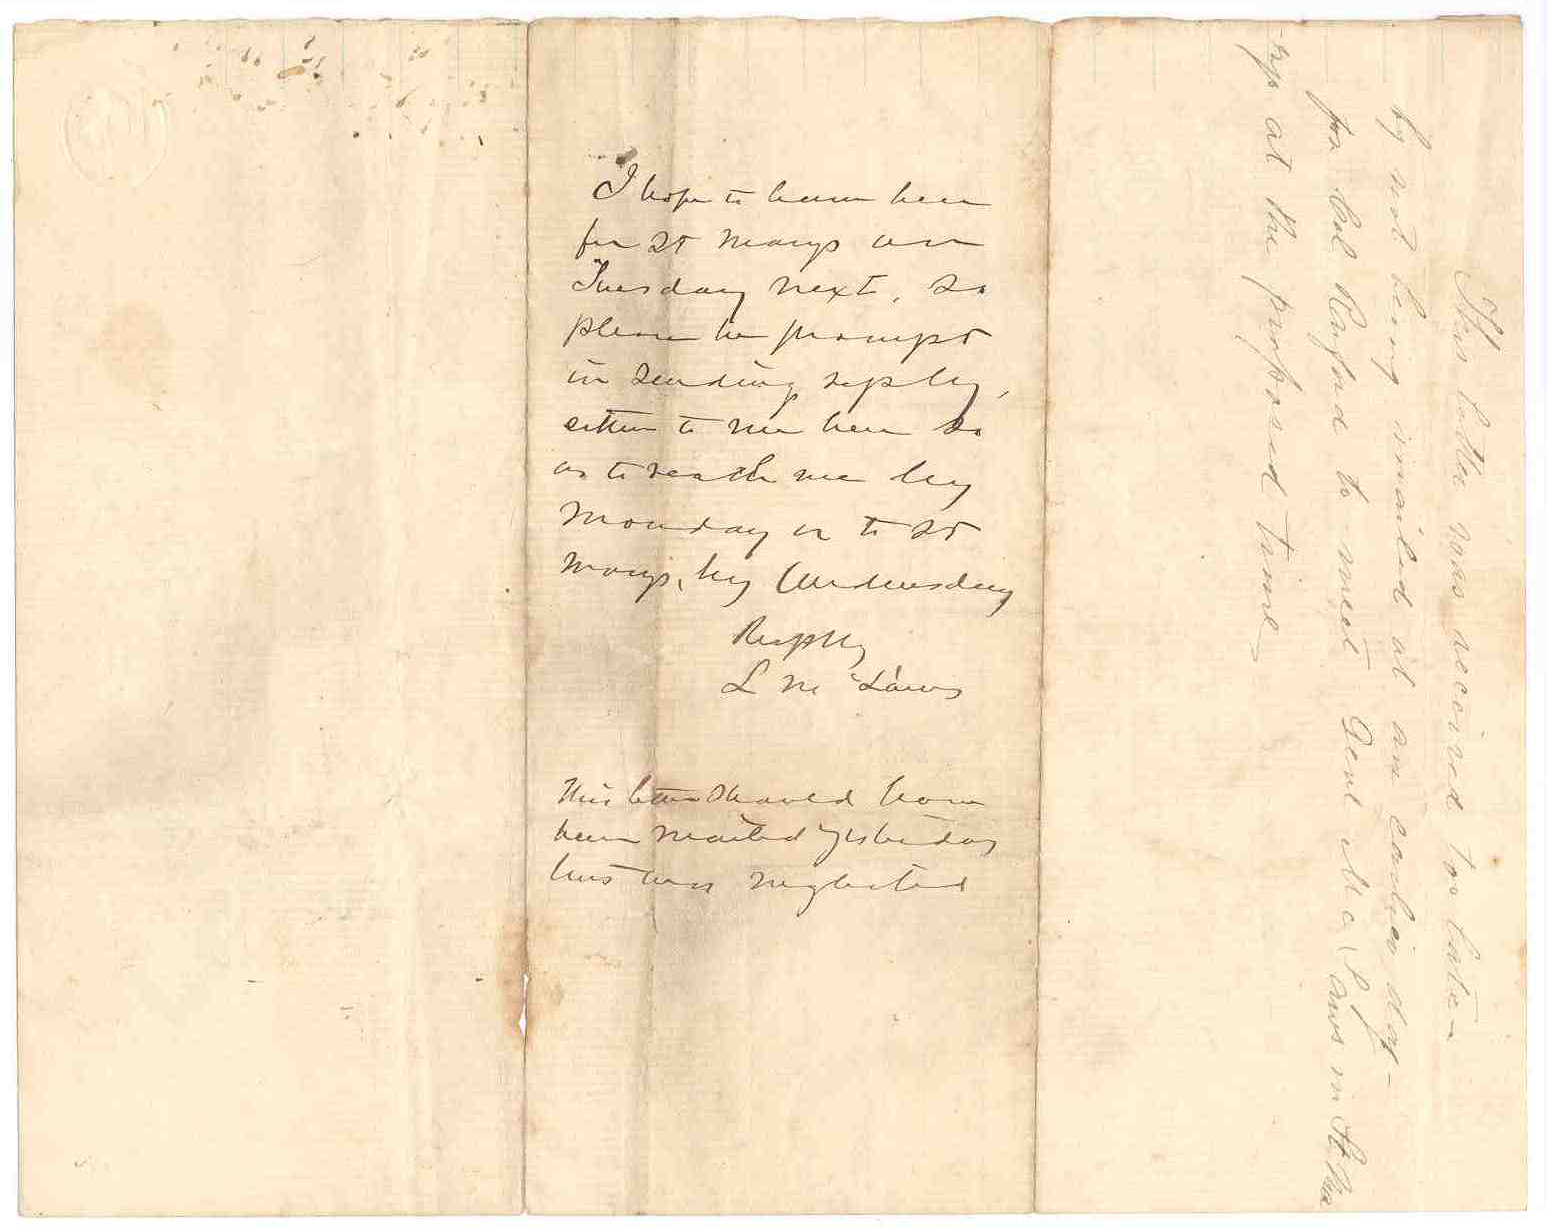 I hope to leave here
for St Marys on
Tuesday next, so
please be prompt
in sending reply,
either to me here so
as to reach me by
Monday or to St
Marys, by Wednesday
Resptly
L McLaws
This letter should have
been mailed yesterday
but was neglected
This letter was received too late—
by not being mailed at an earlier day—
for Col Rayford to meet Genl McLaws in St Ma
-rys at the proposed time—